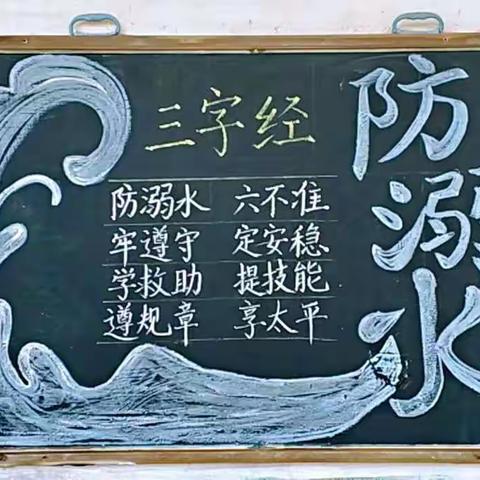 三字经
防溺水 六不准
牢遵守 定安稳
学救助 提技能
遵规章 享太平
防溺水